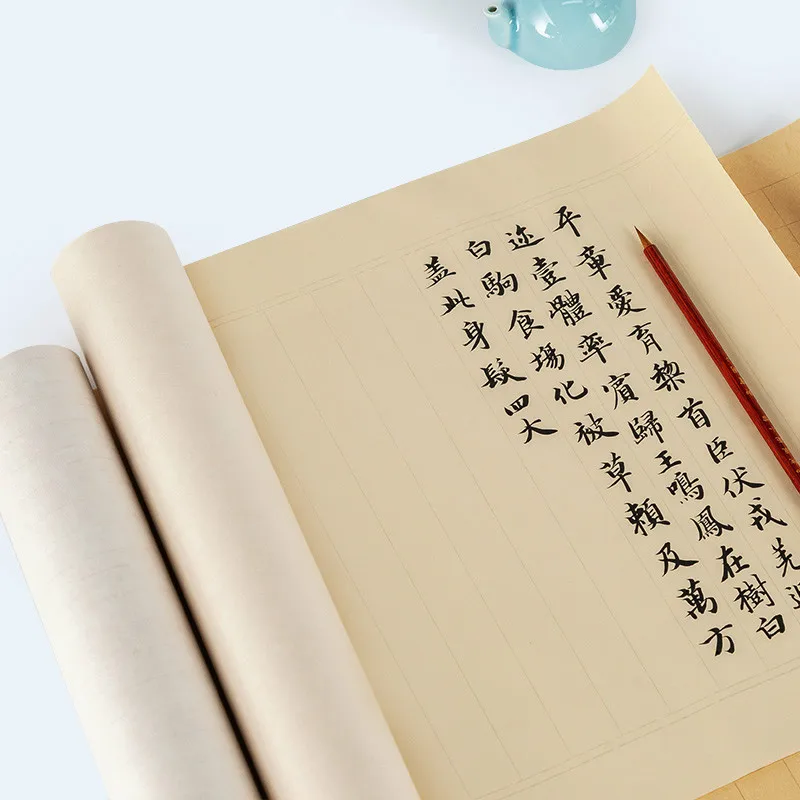 平章愛育黎首臣伏戎羌
迩壹體率賓歸王鳴鳳在樹白
白駒食場化被草賴及萬方
盖此身髮四大